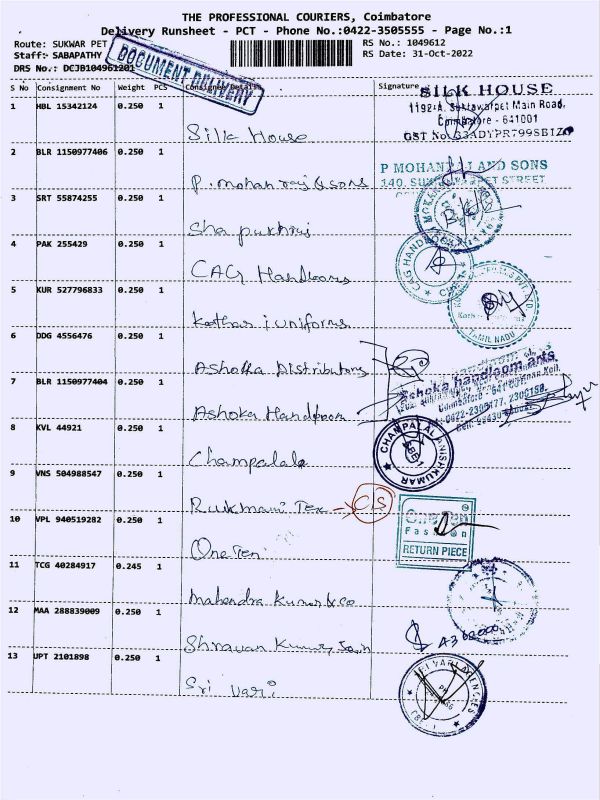 THE PROFESSIONAL COURIERS, Coimbatore
Delivery Runsheet - PCT - Phone No.:0422-3505555 - Page No.:1
Route: SUKWAR PET
RS No.: 1049612
Staff: SABAPATHY
RS Date: 31-Oct-2022
DRS No.: DCJB104961201
DOCUMENT DELIVERY
S No Consignment No Weight PCS Consignee Details Signature
SILK HOUSE
1 HBL 15342124 0.250 1 Silk House
1192-A, Sukrawarpet Main Road,
Coimbatore - 641001
GST No. 33ADYPR7995B1Z
2 BLR 1150977406 0.250 1 P. mohan raj & sons
P MOHAN LAL AND SONS
140, STREET
3 SRT 55874255 0.250 1 Sha
4 PAK 255429 0.250 1 CAG Handlooms
CAG HAND
5 KUR 527796833 0.250 1 Kothari uniforms
TAMIL NADU
6 DDG 4556476 0.250 1 Ashoka Distributors
7 BLR 1150977404 0.250 1 Ashoka Handloom
Ashoka handloom arts
8 KVL 44921 0.250 1 Champalala
CHAMPALAL ANISHKUMAR
9 VNS 504988547 0.250 1 Rukmani Tex
10 VPL 940519282 0.250 1 One Ten
One Ten
Fashion
RETURN PIECE
11 TCG 40284917 0.245 1 Mahendra Kumar & co
12 MAA 288839009 0.250 1 Shravan Kumar Jain
13 UPT 2101898 0.250 1 Sri Vari